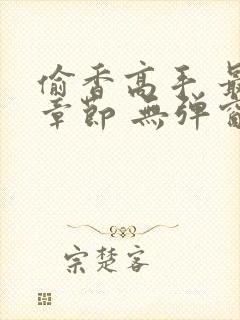 偷香高手 最
章節 無弹窗
宗楚客